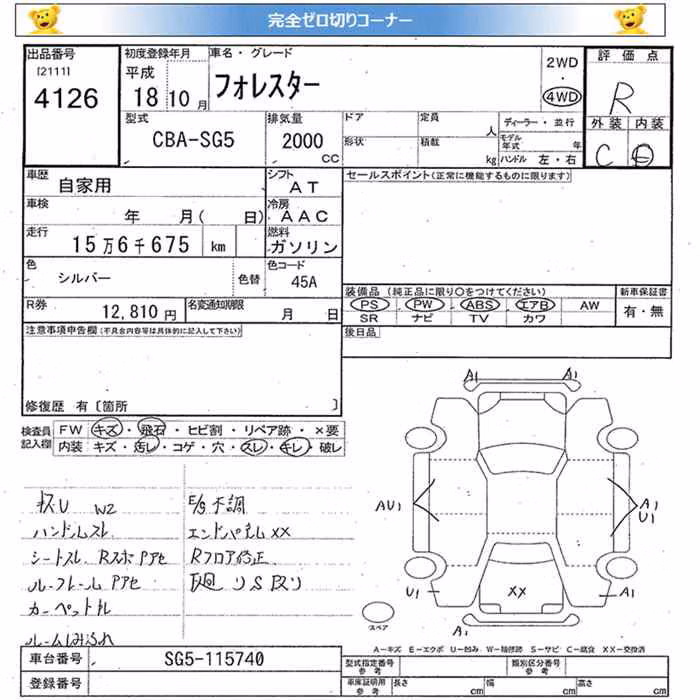 完全ゼロ切りコーナー
出品番号
[2111]
4126
初度登録年月
平成
18 10 月
車名・グレード
フォレスター
2WD
・
4WD
評価点
R
型式
CBA-SG5
排気量
2000
CC
ドア
形状
定員
人
積載
kg
ディーラー・並行
モデル年式
年
ハンドル 左・右
外装 内装
C D
車歴
自家用
シフト
AT
車検
年 月( 日)
冷房
AAC
走行
15万6千675 km
燃料
ガソリン
色
シルバー
色替
色コード
45A
R券
12,810 円
名変通知期限
月 日
セールスポイント(正常に機能するものに限ります)
装備品(純正品に限り〇をつけてください)
新車保証書
PS PW ABS エアB AW
SR ナビ TV カワ
有・無
後日品
注意事項申告欄(不具合内容等は具体的に記入して下さい)
修復歴 有〔箇所 〕
検査員記入欄
FW キズ・飛石・ヒビ割・リペア跡・×要
内装 キズ・汚レ・コゲ・穴・スレ・キレ・破レ
W2
ハンドルスレ
シートスレ
カーペット
E/g不調
エンドパネルXX
Rフロア修正
A1 A1
AU1
A1
U1
U1
XX
A1
A1
スペア
A-キズ E-エクボ U-凹み W-補修跡 S-サビ C-腐食 XX-交換済
車台番号
SG5-115740
登録番号
型式指定番号
参考
類別区分番号
参考
車庫証明用
参考
長さ
cm
幅
cm
高さ
cm